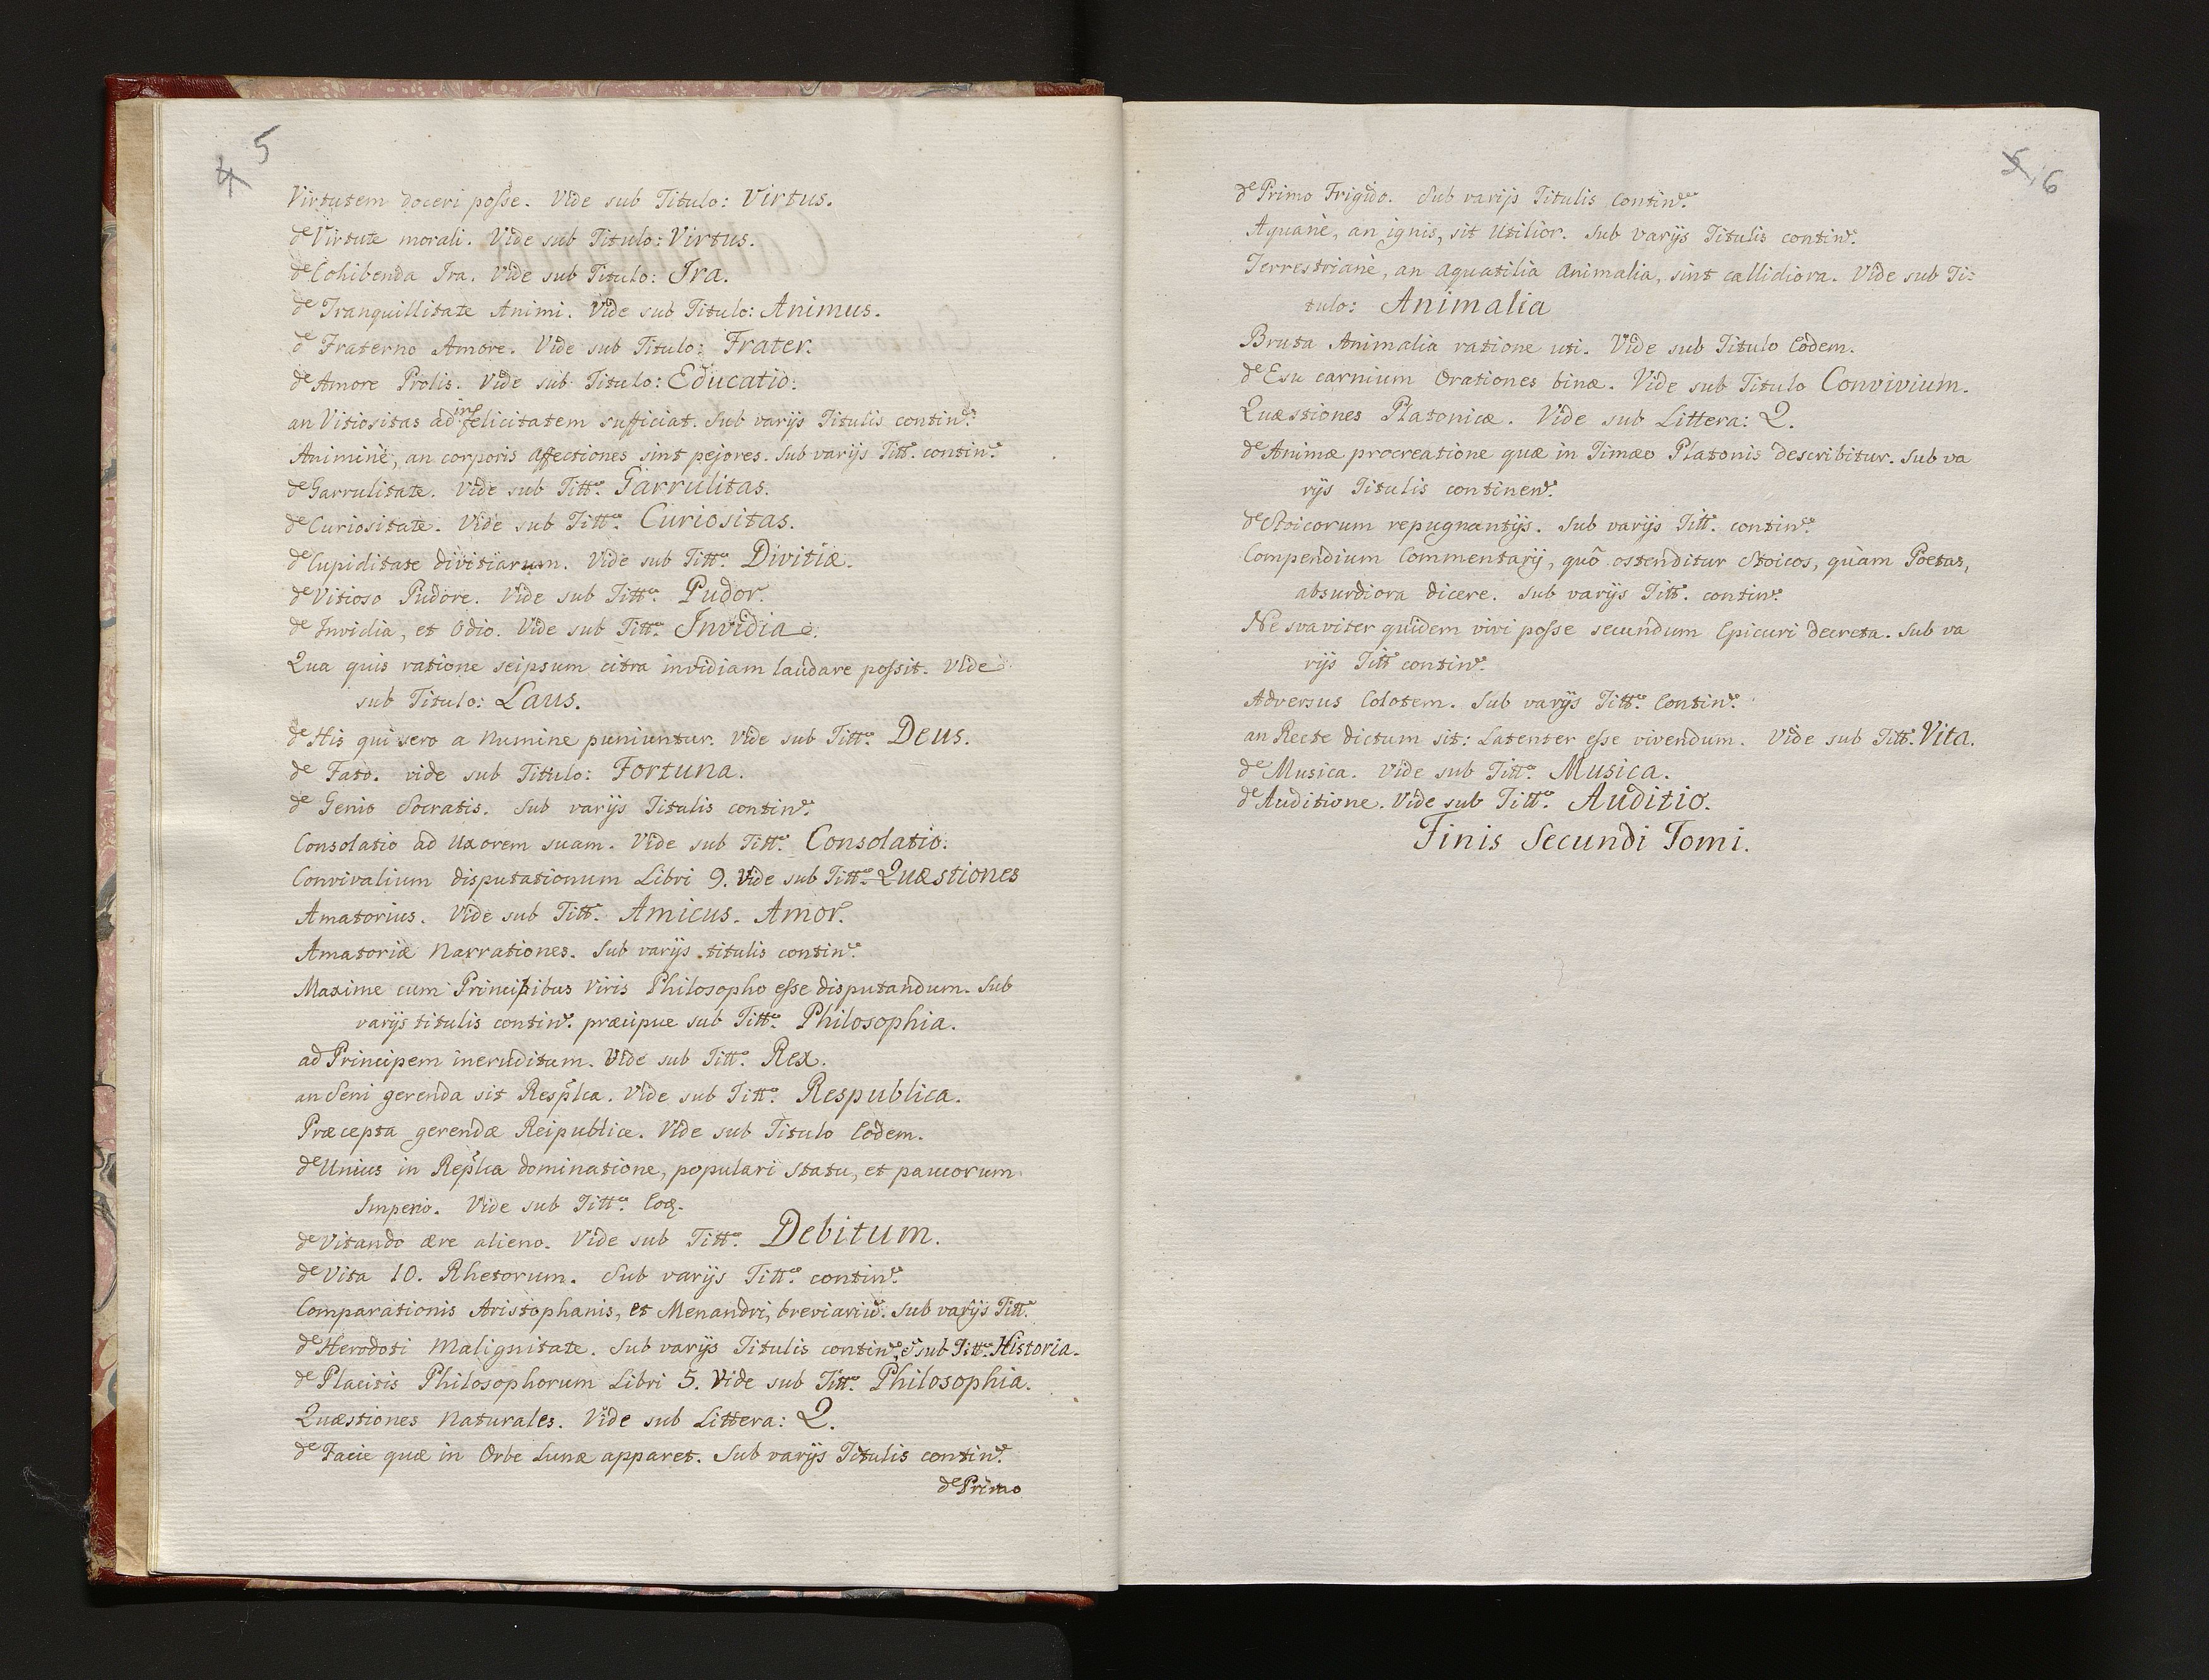 4 5
Virtutem doceri posse. Vide sub Titulo: Virtus.
de Virtute morali. Vide sub Titulo: Virtus.
de Cohibenda Ira. Vide sub Titulo: Ira.
de Tranquillitate Animi. Vide sub Titulo: Animus.
de Fraterno Amore. Vide sub Titulo: Frater.
de Amore Prolis. Vide sub Titulo: Educatio.
an Vitiositas ad infelicitatem sufficiat. Sub varijs Titulis contin.r
Animinè, an corporis affectiones sint pejores. Sub varijs Titt. contin.r
de Garrulitate. Vide sub Titt.o Garrulitas.
de Curiositate. Vide sub Titt.o Curiositas.
de Cupiditate divitiarum. Vide sub Titt.o Divitiæ.
de Vitioso Pudore. Vide sub Titt.o Pudor.
de Invidia, et Odio. Vide sub Titt.o Invidia
Qua quis ratione seipsum citra invidiam laudare possit. Vide
sub Titulo: Laus.
de His qui sero a Numine puniuntur. Vide sub Titt.o Deus.
de Fato. vide sub Titulo: Fortuna.
de Genio Socratis. Sub varijs Titulis contin.r
Consolatio ad Uxorem suam. Vide sub Titt.o Consolatio.
Convivalium disputationum Libri 9. Vide sub Titt.o Quæstiones
Amatorius. Vide sub Titt.o Amicus. Amor.
Amatoriæ Narrationes. Sub varijs titulis contin.r
Maxime cum Principibus Viris Philosopho esse disputandum. Sub
varijs titulis contin.r præcipue sub Titt.o Philosophia.
ad Principem ineruditum. Vide sub Titt.o Rex.
an Seni gerenda sit Resplca. Vide sub Titt.o Respublica.
Præcepta gerendæ Reipublicæ. Vide sub Titulo Eodem.
de Unius in Replca dominatione, populari statu, et paucorum
Imperio. Vide sub Titt.o Eod.
de Vitando ære alieno. Vide sub Titt.o Debitum.
de Vita 10. Rhetorum. Sub varijs Titt.o contin.r
Comparationis Aristophanis, et Menandri, breviariũ. Sub varijs Titt.
de Herodoti Malignitate. Sub varijs Titulis contin.r, et sub Titt.o Historia.
de Placitis Philosophorum Libri 5. Vide sub Titt.o Philosophia.
Quæstiones Naturales. Vide sub Littera: Q.
de Facie quæ in Orbe Lunæ apparet. Sub varijs Titulis contin.r
de Primo
5 6
de Primo Frigido. Sub varijs Titulis contin.r
Aquanè, an ignis, sit utilior. Sub varijs Titulis contin.r
Terrestrianè, an aquatilia animalia, sint callidiora. Vide sub Ti=
tulo: Animalia
Bruta Animalia ratione uti. Vide sub Titulo Eodem.
de Esu carnium Orationes binæ. Vide sub Titulo Convivium.
Quæstiones Platonicæ. Vide sub Littera: Q.
de Animæ procreatione quæ in Timæo Platonis describitur. Sub va
rijs Titulis continen.r
de Stoicorum repugnantijs. Sub varijs Titt. contin.r
Compendium Commentarij, quô ostenditur Stoicos, quàm Poetas,
absurdiora dicere. Sub varijs Titt. contin.r
Ne svaviter quidem vivi posse secundum Epicuri decreta. Sub va
rijs Titt contin.r
Adversus Colotem. Sub varijs Titt.o Contin.r
an Recte dictum sit: Latenter esse vivendum. Vide sub Titt. Vita.
de Musica. Vide sub Titt.o Musica.
de Auditione. Vide sub Titt.o Auditio.
Finis Secundi Tomi.